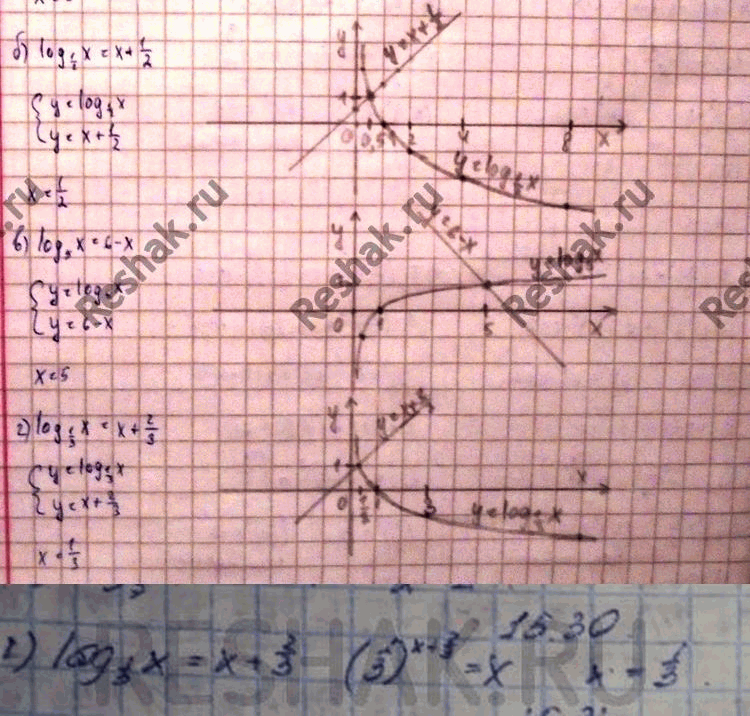 б) log_{1/2} x = x + 1/2
{ y = log_{1/2} x
{ y = x + 1/2
x = 1/2
y
y = x + 1/2
1
0 0,5 1 2 4 8 x
y = log_{1/2} x
в) log_5 x = 6 - x
{ y = log_5 x
{ y = 6 - x
x = 5
y
y = 6 - x
y = log_5 x
0 1 5 x
г) log_{1/3} x = x + 2/3
{ y = log_{1/3} x
{ y = x + 2/3
x = 1/3
y
y = x + 2/3
1
x
0 1/3 1 3
y = log_{1/3} x
Reshak.ru
Reshak.ru
Reshak.ru
15.30
г) log_{1/3} x = x + 2/3 (1/3)^{x + 2/3} = x x = 1/3.
RESHAK.RU